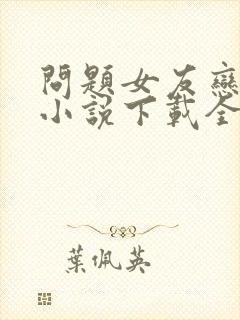 問題女友戀
小說下載全
葉佩英